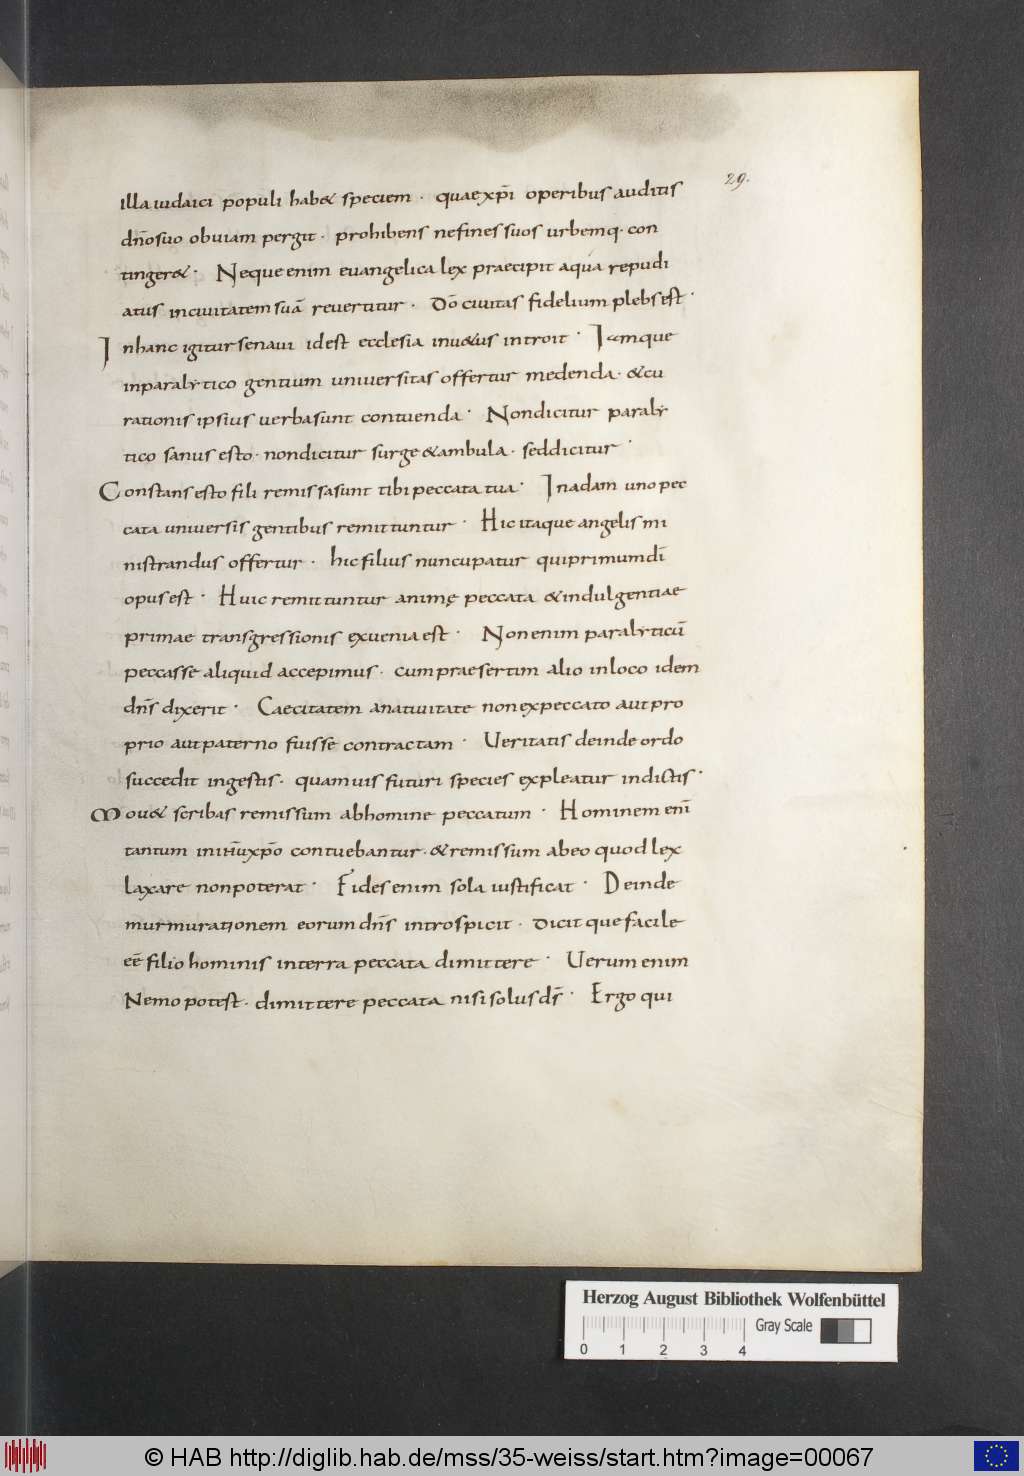 29.
illa iudaici populi hab& speciem · quae xp̄i operibus auditis
dn̄o suo obuiam pergit · prohibens ne fines suos urbemq· con
tinger& · Neque enim euangelica lex praecipit a qua repudi
atus in ciuitatem suā reuertitur · dō ciuitas fidelium plebs est ·
In hanc igitur senaui id est ecclesia inu&us introit · Iamque
in paralytico gentium uniuersitas offertur medenda · & cu
rationis ipsius uerba sunt contuenda · Non dicitur paraly
tico sanus esto · non dicitur surge & ambula · sed dicitur ·
Constans esto fili remissa sunt tibi peccata tua · In adam uno pec
cata uniuersis gentibus remittuntur · Hic itaque angelis mi
nistrandus offertur · hic filius nuncupatur qui primum dī
opus est · Huic remittuntur animę peccata & indulgentiae
primae transgressionis ex uenia est · Non enim paralyticū
peccasse aliquid accepimus · cum praesertim alio in loco idem
dn̄s dixerit · Caecitatem a natiuitate non ex peccato aut pro
prio aut paterno fuisse contractam · Ueritatis deinde ordo
succedit in gestis · quamuis futuri species expleatur in dictis ·
Mou& scribas remissum ab homine peccatum · Hominem enī
tantum in ihū xp̄o contuebantur · & remissum ab eo quod lex
laxare non poterat · Fides enim sola iustificat · Deinde
murmurationem eorum dn̄s introspicit · dicitque facile
eē filio hominis in terra peccata dimittere · Uerum enim
Nemo potest · dimittere peccata nisi solus ds̄ · Ergo qui
Herzog August Bibliothek Wolfenbüttel
Gray Scale
0 1 2 3 4
© HAB http://diglib.hab.de/mss/35-weiss/start.htm?image=00067